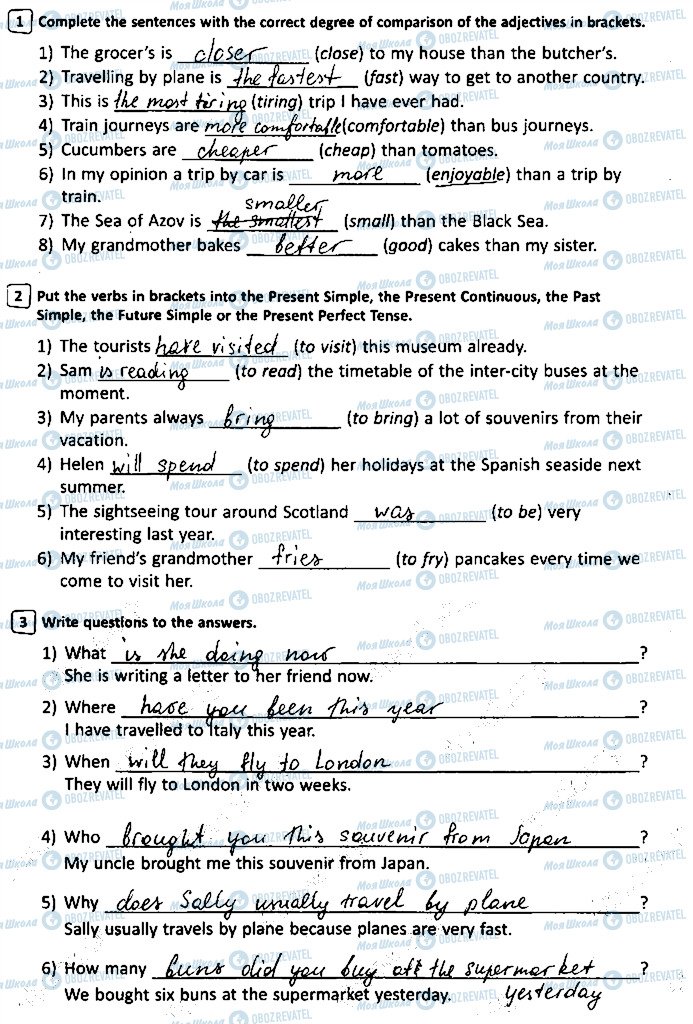 1 Complete the sentences with the correct degree of comparison of the adjectives in brackets.
1) The grocer's is closer (close) to my house than the butcher's.
2) Travelling by plane is the fastest (fast) way to get to another country.
3) This is the most tiring (tiring) trip I have ever had.
4) Train journeys are more comfortable (comfortable) than bus journeys.
5) Cucumbers are cheaper (cheap) than tomatoes.
6) In my opinion a trip by car is more (enjoyable) than a trip by
train.
smaller
7) The Sea of Azov is the smallest (small) than the Black Sea.
8) My grandmother bakes better (good) cakes than my sister.
2 Put the verbs in brackets into the Present Simple, the Present Continuous, the Past
Simple, the Future Simple or the Present Perfect Tense.
1) The tourists have visited (to visit) this museum already.
2) Sam is reading (to read) the timetable of the inter-city buses at the
moment.
3) My parents always bring (to bring) a lot of souvenirs from their
vacation.
4) Helen will spend (to spend) her holidays at the Spanish seaside next
summer.
5) The sightseeing tour around Scotland was (to be) very
interesting last year.
6) My friend's grandmother fries (to fry) pancakes every time we
come to visit her.
3 Write questions to the answers.
1) What is she doing now ?
She is writing a letter to her friend now.
2) Where have you been this year ?
I have travelled to Italy this year.
3) When will they fly to London ?
They will fly to London in two weeks.
4) Who brought you this souvenir from Japan ?
My uncle brought me this souvenir from Japan.
5) Why does Sally usually travel by plane ?
Sally usually travels by plane because planes are very fast.
6) How many buns did you buy at the supermarket ?
We bought six buns at the supermarket yesterday. yesterday
Моя Школа OBOZREVATEL